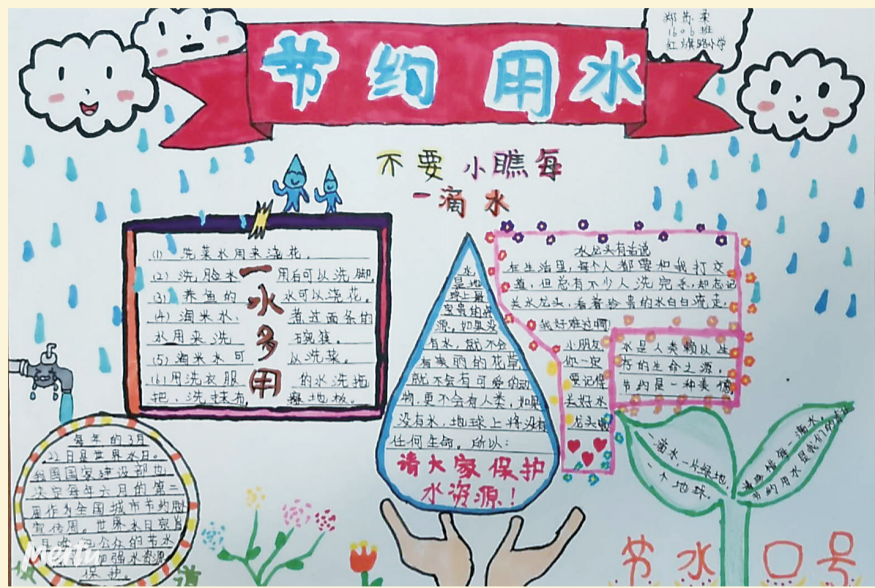 节约用水
郑苏柔
1606班
红旗路小学
不要小瞧每
一滴水
一水多用
(1) 洗菜水用来浇花。
(2) 洗脸水用后可以洗脚。
(3) 养鱼的水可以浇花。
(4) 淘米水、煮过面条的
水用来洗碗筷。
(5) 淘米水可以洗菜。
(6) 用洗衣服的水洗拖
把、洗抹布、擦地板。
水
是地
球上最
宝贵的资
源,如果没
有水,就不会
有美丽的花草
就不会有可爱的动
物,更不会有人类,如果
没有水,地球上将没有
任何生命。所以:
请大家保护
水资源!
水龙头有话说
在生活里,每个人都要和我打交
道,但总有不少人洗完手,却忘记
关水龙头,看着珍贵的水白白流走,
我好难过啊!
小朋友
你一定
要记得
关好水
龙头哦
水是人类赖以生
存的生命之源,
节约是一种美德
每年的3月
22日是世界水日。
我国国家建设部也
决定每年六月的第二
周作为全国城市节约用水
宣传周。世界水日宗旨
是唤起公众的节水
加强水资源
保护。
一滴水,一片绿地,
一个地球。
请珍惜每一滴水,
节约用水是我们的责任
节水口号
Meitu